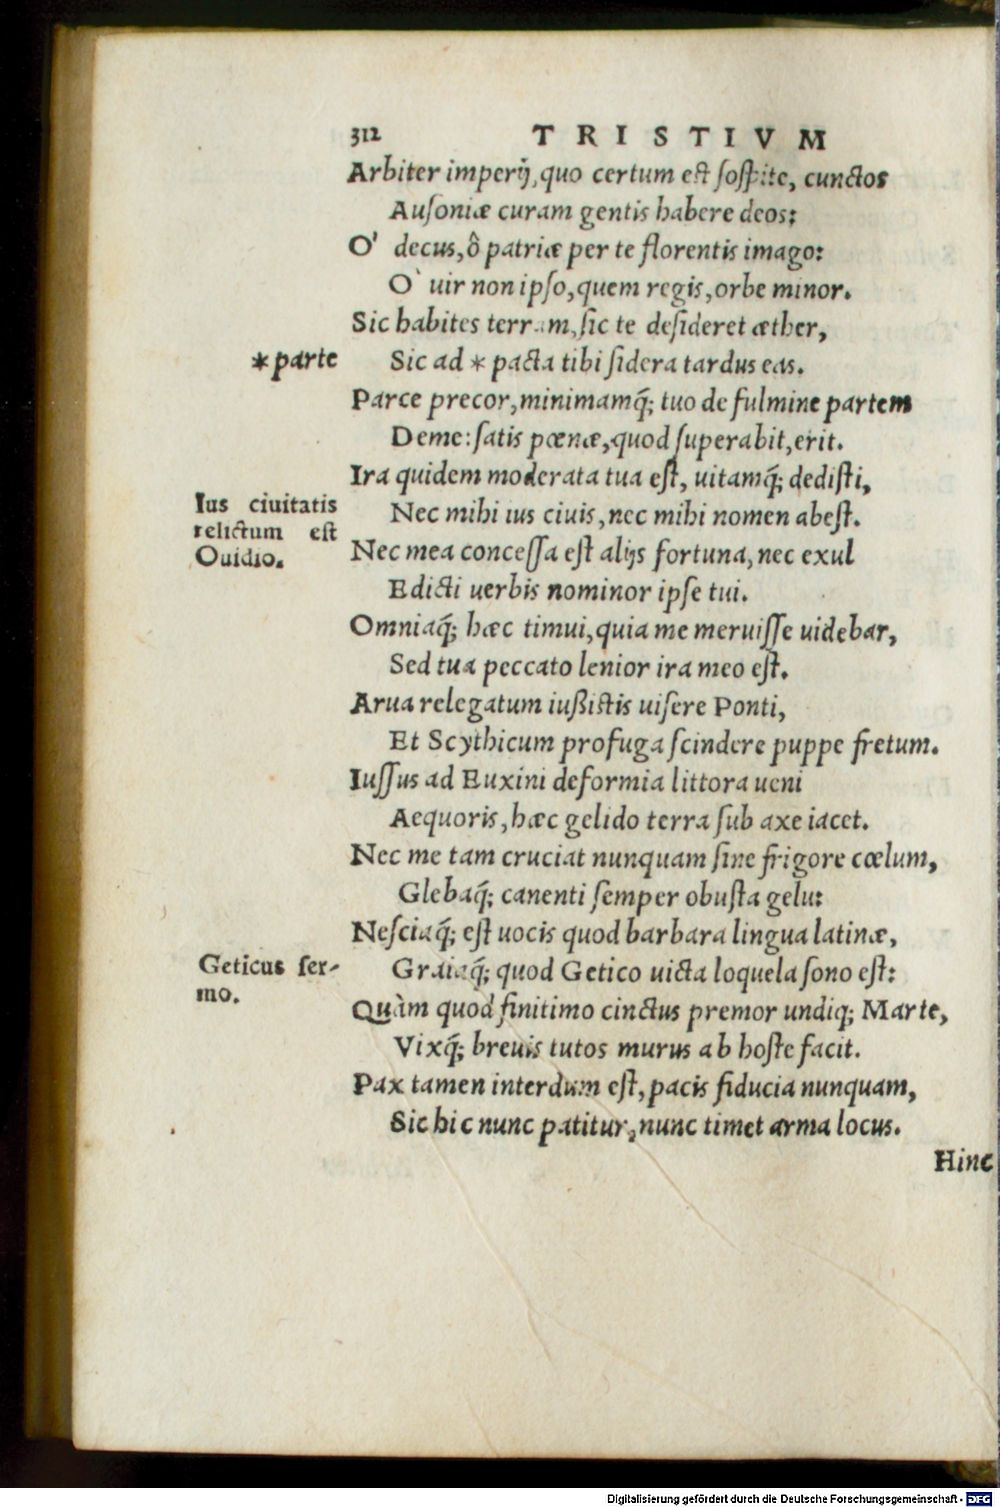 312 TRISTIVM
Arbiter imperij, quo certum est sospite, cunctos
Ausoniæ curam gentis habere deos;
O' decus, ô patriæ per te florentis imago:
O` uir non ipso, quem regis, orbe minor.
Sic habites terram, sic te desideret æther,
*parte
Sic ad * pacta tibi sidera tardus eas.
Parce precor, minimamq́; tuo de fulmine partem
Deme: satis pœnæ, quod superabit, erit.
Ira quidem moderata tua est, uitamq́; dedisti,
Ius ciuitatis
relictum est
Ouidio.
Nec mihi ius ciuis, nec mihi nomen abest.
Nec mea concessa est alijs fortuna, nec exul
Edicti uerbis nominor ipse tui.
Omniaq́; hæc timui, quia me meruisse uidebar,
Sed tua peccato lenior ira meo est.
Arua relegatum iußistis uisere Ponti,
Et Scythicum profuga scindere puppe fretum.
Iussus ad Euxini deformia littora ueni
Aequoris, hæc gelido terra sub axe iacet.
Nec me tam cruciat nunquam sine frigore cœlum,
Glebaq́; canenti semper obusta gelu:
Nesciaq́; est uocis quod barbara lingua latinæ,
Geticus ser-
mo.
Graiaq́; quod Getico uicta loquela sono est:
Quàm quod finitimo cinctus premor undiq; Marte,
Vixq́; breuis tutos murus ab hoste facit.
Pax tamen interdum est, pacis fiducia nunquam,
Sic hic nunc patitur, nunc timet arma locus.
Hinc
Digitalisierung gefördert durch die Deutsche Forschungsgemeinschaft - DFG